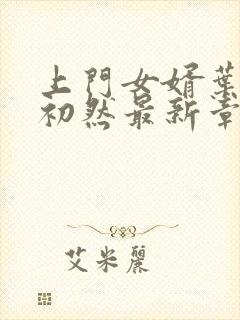 上門女婿葉
初然最新章
艾米麗